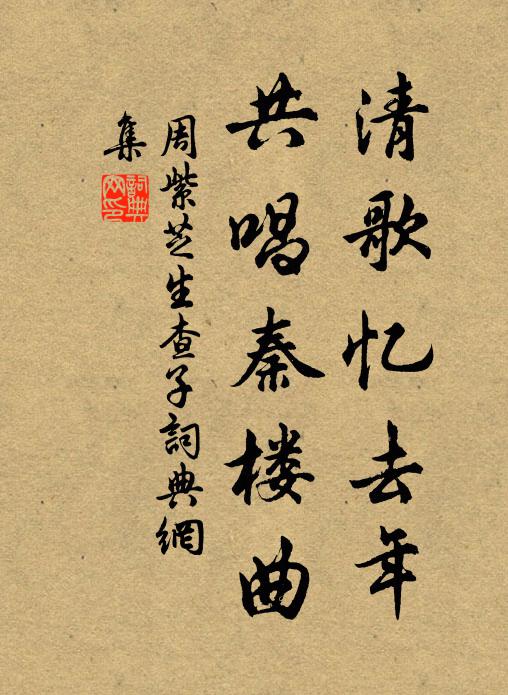 清歌忆去年
共唱秦楼曲
周紫芝生查子詞典網
集
詞典
网印